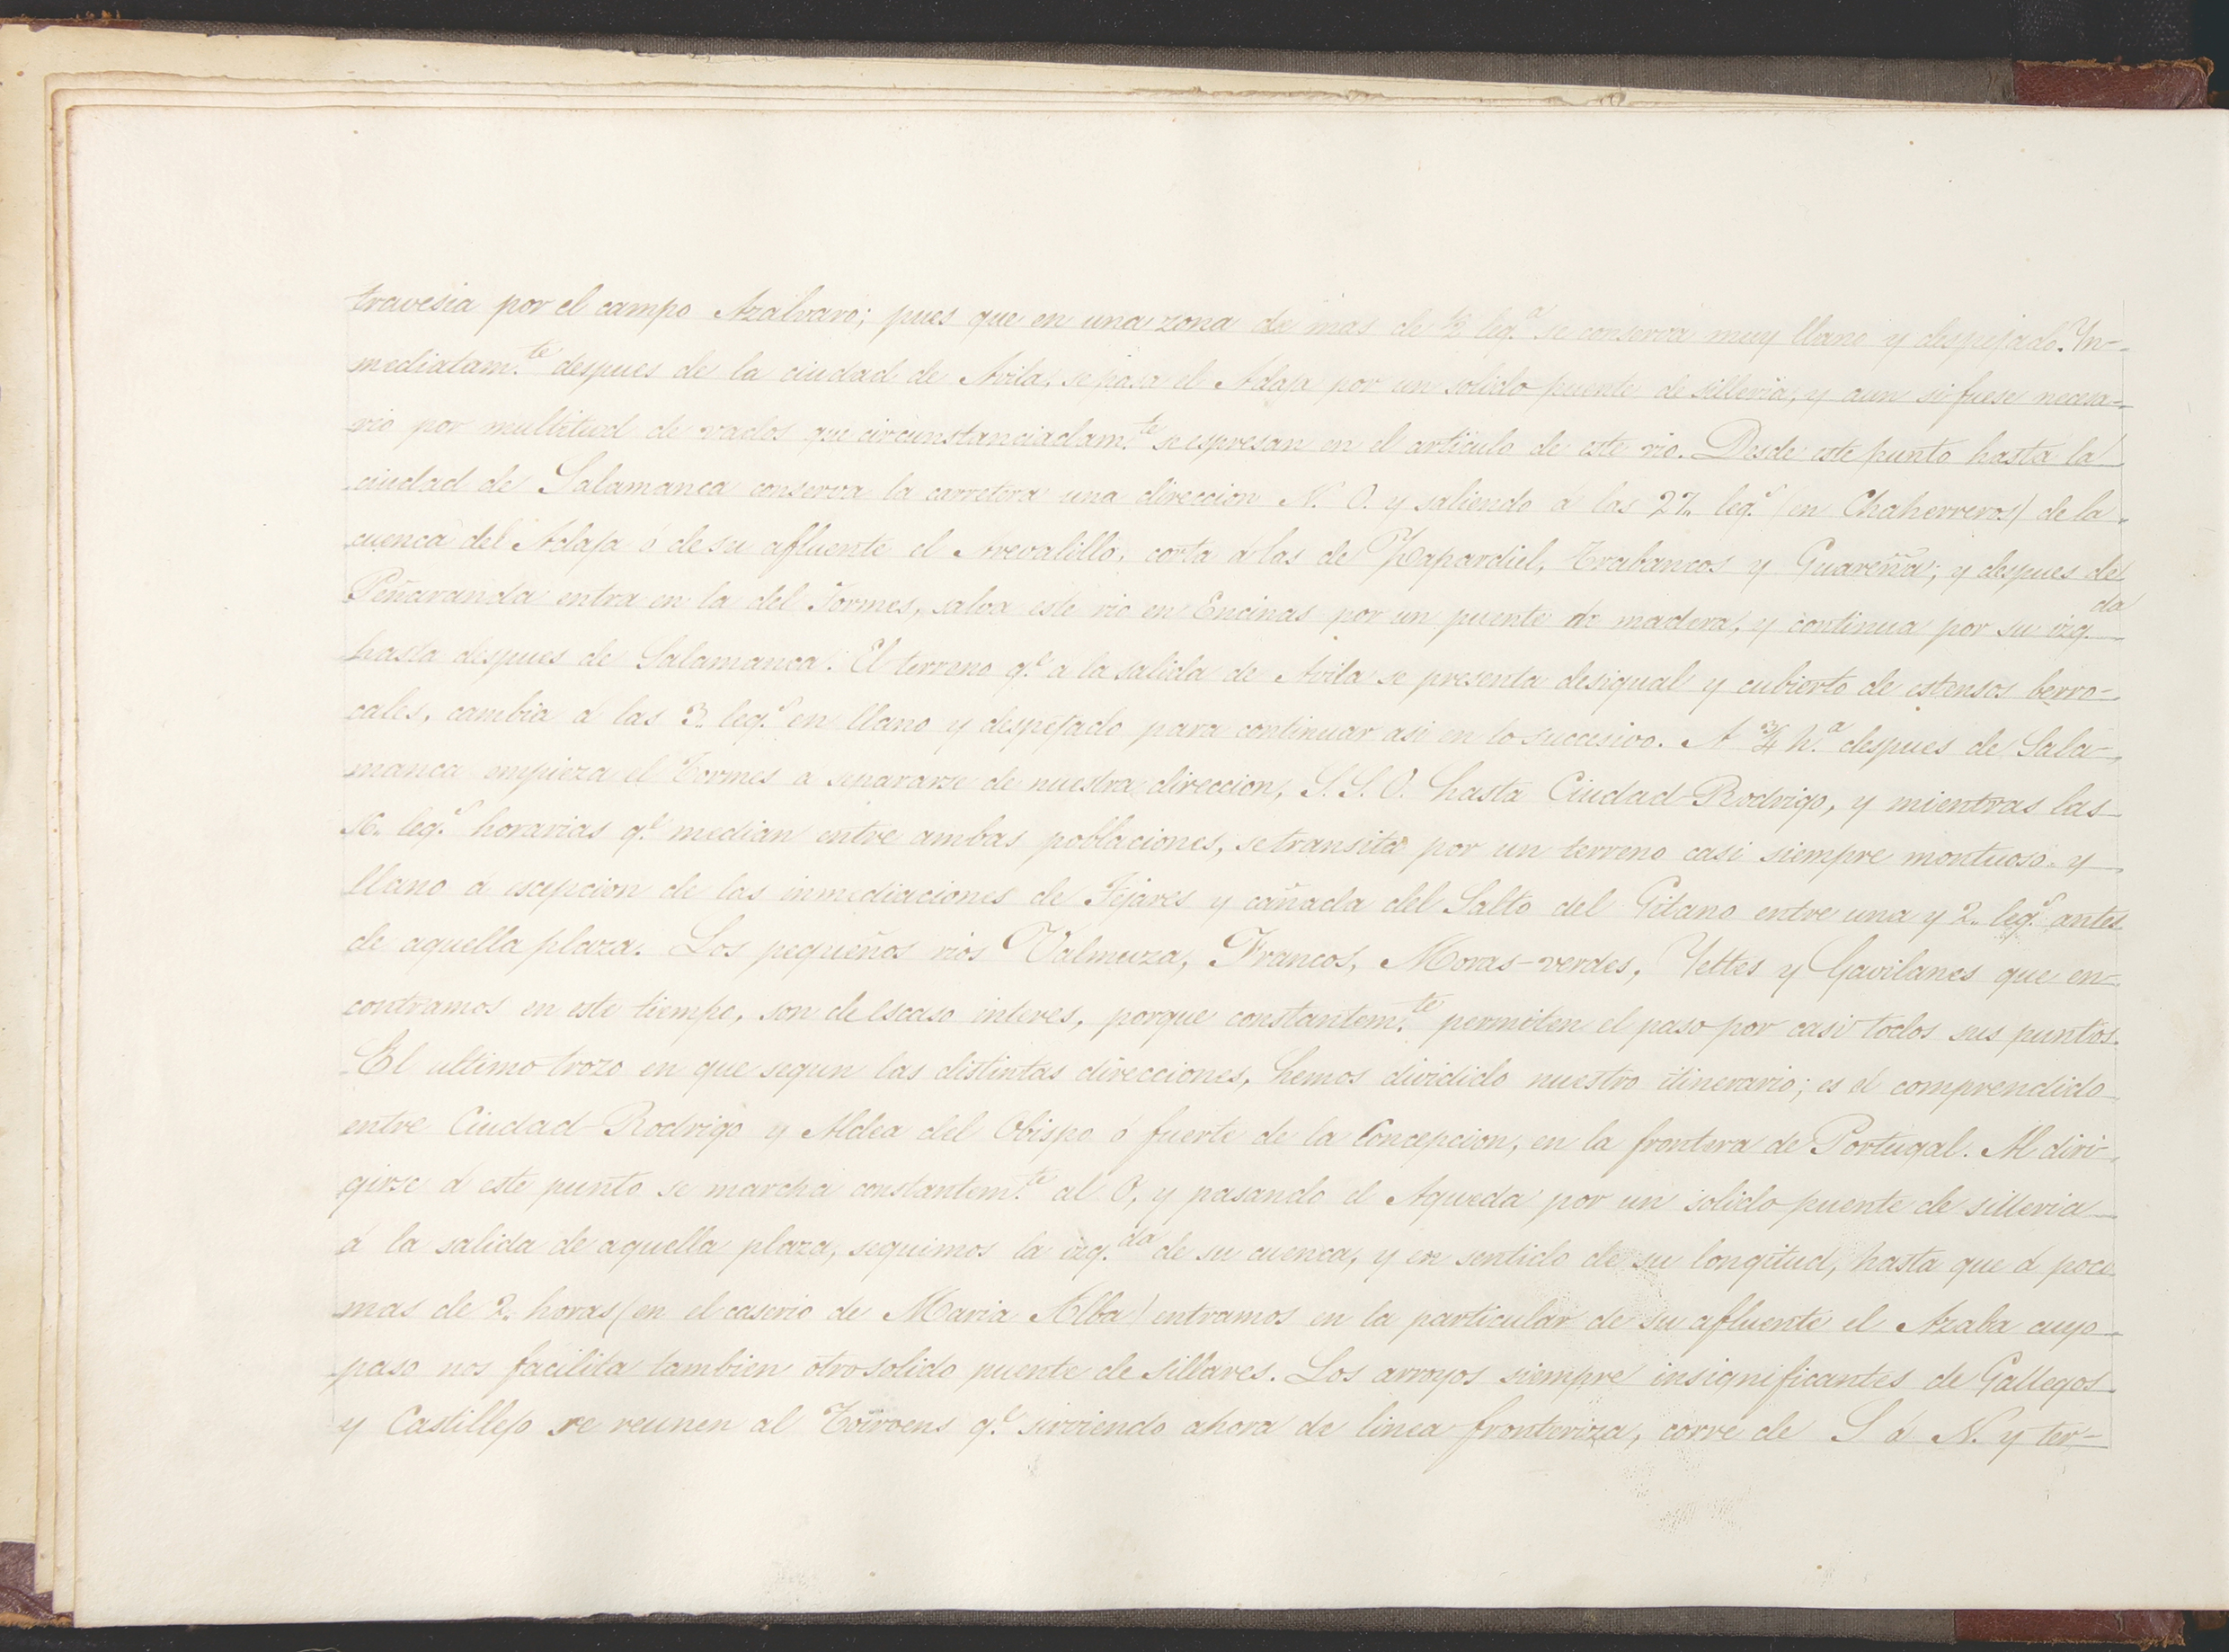 travesia por el campo Azalvaro; pues que en una zona de mas de ½ leg.ª se conserva muy llano y despejado. In-
mediatam.te despues de la ciudad de Avila, se pasa el Adaja por un solido puente de silleria, y aun si fuese necesa-
rio por multitud de vados que circunstanciadam.te se espresan en el articulo de este rio. Desde este punto hasta la
ciudad de Salamanca conserva la carretera una direccion N. O. y saliendo á las 27 leg.s (en Chaherreros) de la
cuenca del Adaja ó de su afluente el Arevalillo, corta á las de Zapardiel, Trabancos y Guareña; y despues de
Peñaranda entra en la del Tormes, salva este rio en Encinas por un puente de madera, y continua por su izq.da
hasta despues de Salamanca. El terreno q.e a la salida de Avila se presenta desigual y cubierto de estensos berro-
cales, cambia á las 3 leg.s en llano y despejado para continuar asi en lo succesivo. A ¾ h.a despues de Sala-
manca empieza el Tormes a separarse de nuestra direccion, S. S. O. hasta Ciudad-Rodrigo, y mientras las
16 leg.s horarias q.e median entre ambas poblaciones, se transita por un terreno casi siempre montuoso y
llano á escepcion de las inmediaciones de Tejares y cañada del Salto del Gitano entre una y 2 leg.s antes
de aquella plaza. Los pequeños rios Valmuza, Francos, Moras-verdes, Yeltes y Gavilanes que en-
contramos en este tiempo, son de escaso interes, porque constantem.te permiten el paso por casi todos sus puntos.
El ultimo trozo en que segun las distintas direcciones, hemos dividido nuestro itinerario; es el comprendido
entre Ciudad-Rodrigo y Aldea del Obispo ó fuerte de la Concepcion, en la frontera de Portugal. Al diri-
girse á este punto se marcha constantem.te al O, y pasando el Agueda por un solido puente de silleria
á la salida de aquella plaza, seguimos la izq.da de su cuenca, y en sentido de su longitud, hasta que á poco
mas de 2 horas (en el caserio de Maria Alba) entramos en la particular de su afluente el Azaba cuyo
paso nos facilita tambien otro solido puente de sillares. Los arroyos siempre insignificantes de Gallegos
y Castillejo se reunen al Toiroens q.e sirviendo ahora de linea fronteriza, corre de S á N. y ter-